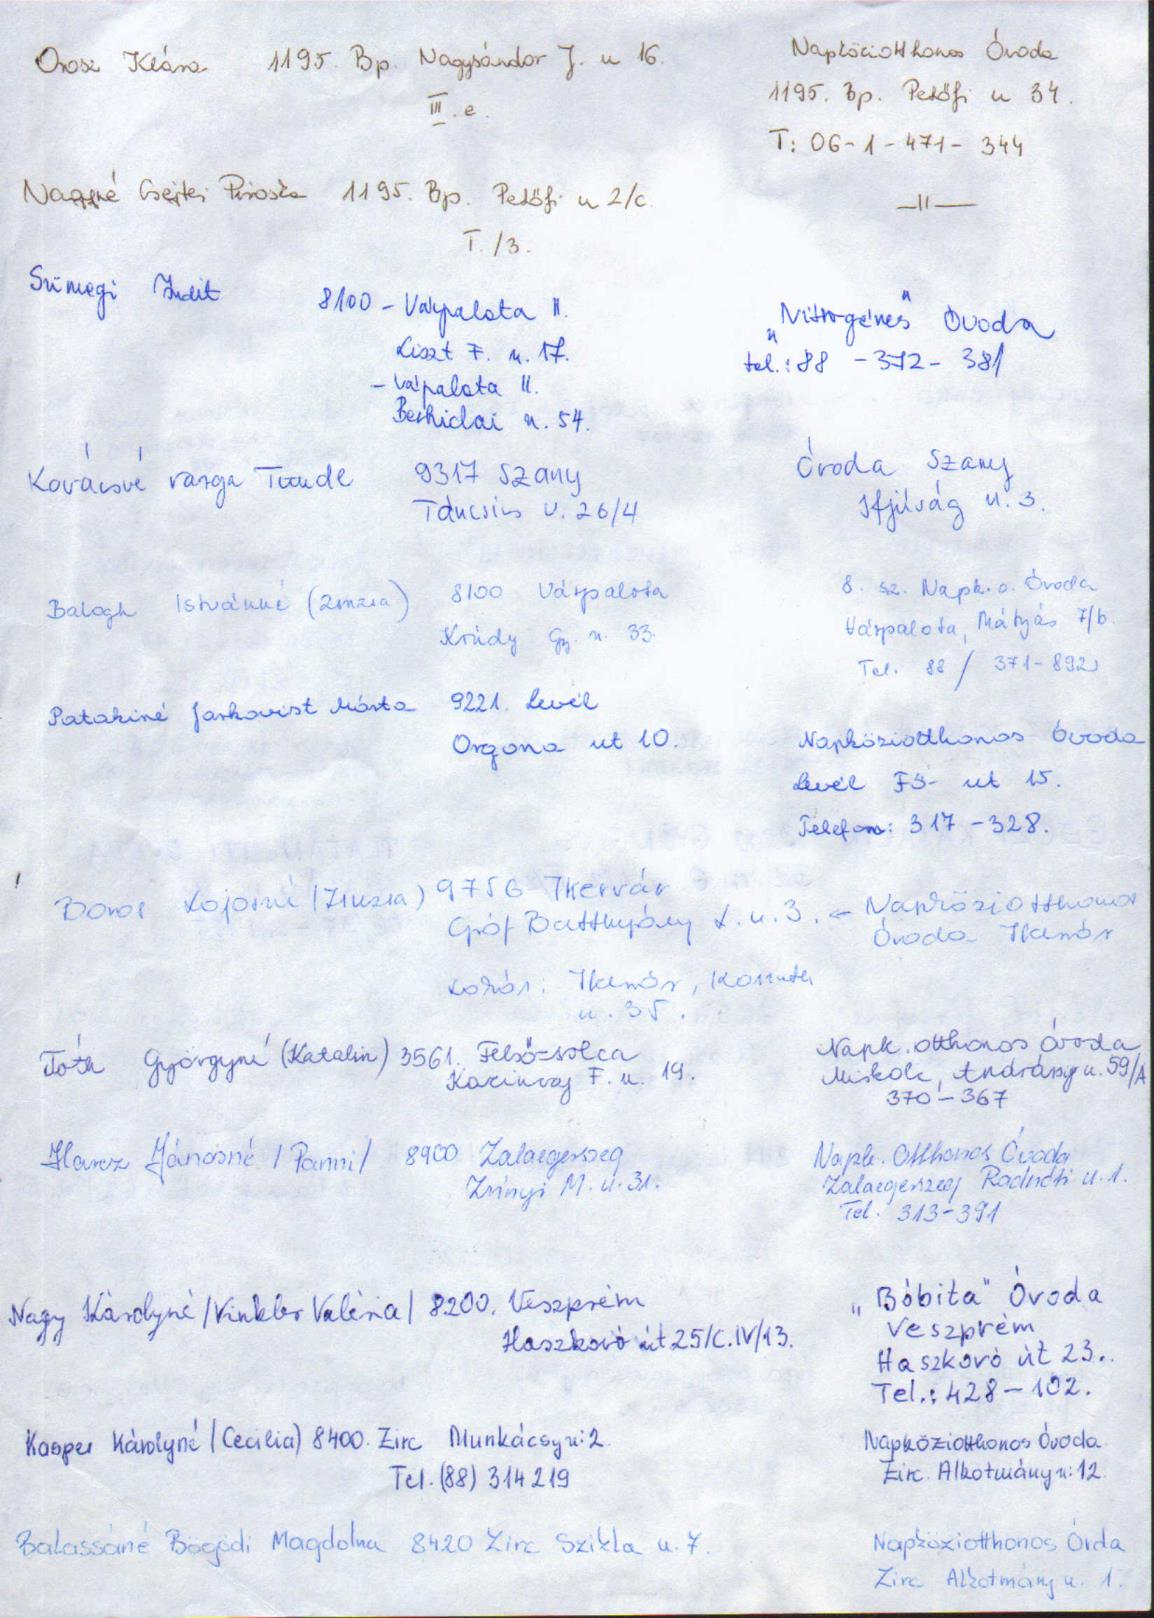 Orosz Klára 1195. Bp. Nagysándor J. u 16. Napköziotthonos Óvoda
III. e. 1195. Bp. Petőfi u 34.
T: 06-1-471-344
Nagyné Csejtei Piroska 1195. Bp. Petőfi u 2/c. —II—
I. /3.
Sümegi Judit 8100 - Várpalota II. „Nitrogénes" Óvoda
Liszt F. u. 17. tel.: 88 - 372 - 381
- Várpalota II.
Berhidai u. 54.
Kovácsné Varga Tünde 9317 Szany Óvoda Szany
Táncsics u. 26/4 Ifjúság u. 3.
Balogh Istvánné (Zsuzsa) 8100 Várpalota 8. sz. Napk. o. Óvoda
Krúdy Gy. u. 33. Várpalota, Mátyás 7/b.
Tel. 88 / 371-892
Patakiné Márta 9221. Levél
Orgona ut 10. Napköziotthonos Óvoda
Levél Fő- ut 15.
Telefon: 317-328.
Boros Lajosné /Zsuzsa) 9756 Ikervár
Gróf Batthyány L. u. 3. ← Napköziotthonos
Óvoda Ikervár
Lakás: Ikervár, Kossuth
u. 35.
Tóth Györgyné (Katalin) 3561. Felsőzsolca Napk. otthonos óvoda
Kazinczy F. u. 19. Miskolc, Andrássy u. 59/A
370-367
Harcz Jánosné /Panni/ 8900 Zalaegerszeg Napk. Otthonos Óvoda
Zrínyi M. u. 31. Zalaegerszeg Radnóti u. 1.
Tel. 313-391
Nagy Károlyné /Vinkler Valéria/ 8200. Veszprém „Bóbita" Óvoda
Haszkovó út 25/C. IV/13. Veszprém
Haszkovó út 23.
Tel.: 428-102.
Kasper Károlyné /Cecília) 8400. Zirc Munkácsy u: 2. Napköziotthonos Óvoda
Tel. (88) 314 219 Zirc. Alkotmány u: 12.
Balassáné Bögödi Magdolna 8420 Zirc Szikla u. 7. Napköziotthonos Órda
Zirc Alkotmány u. 1.